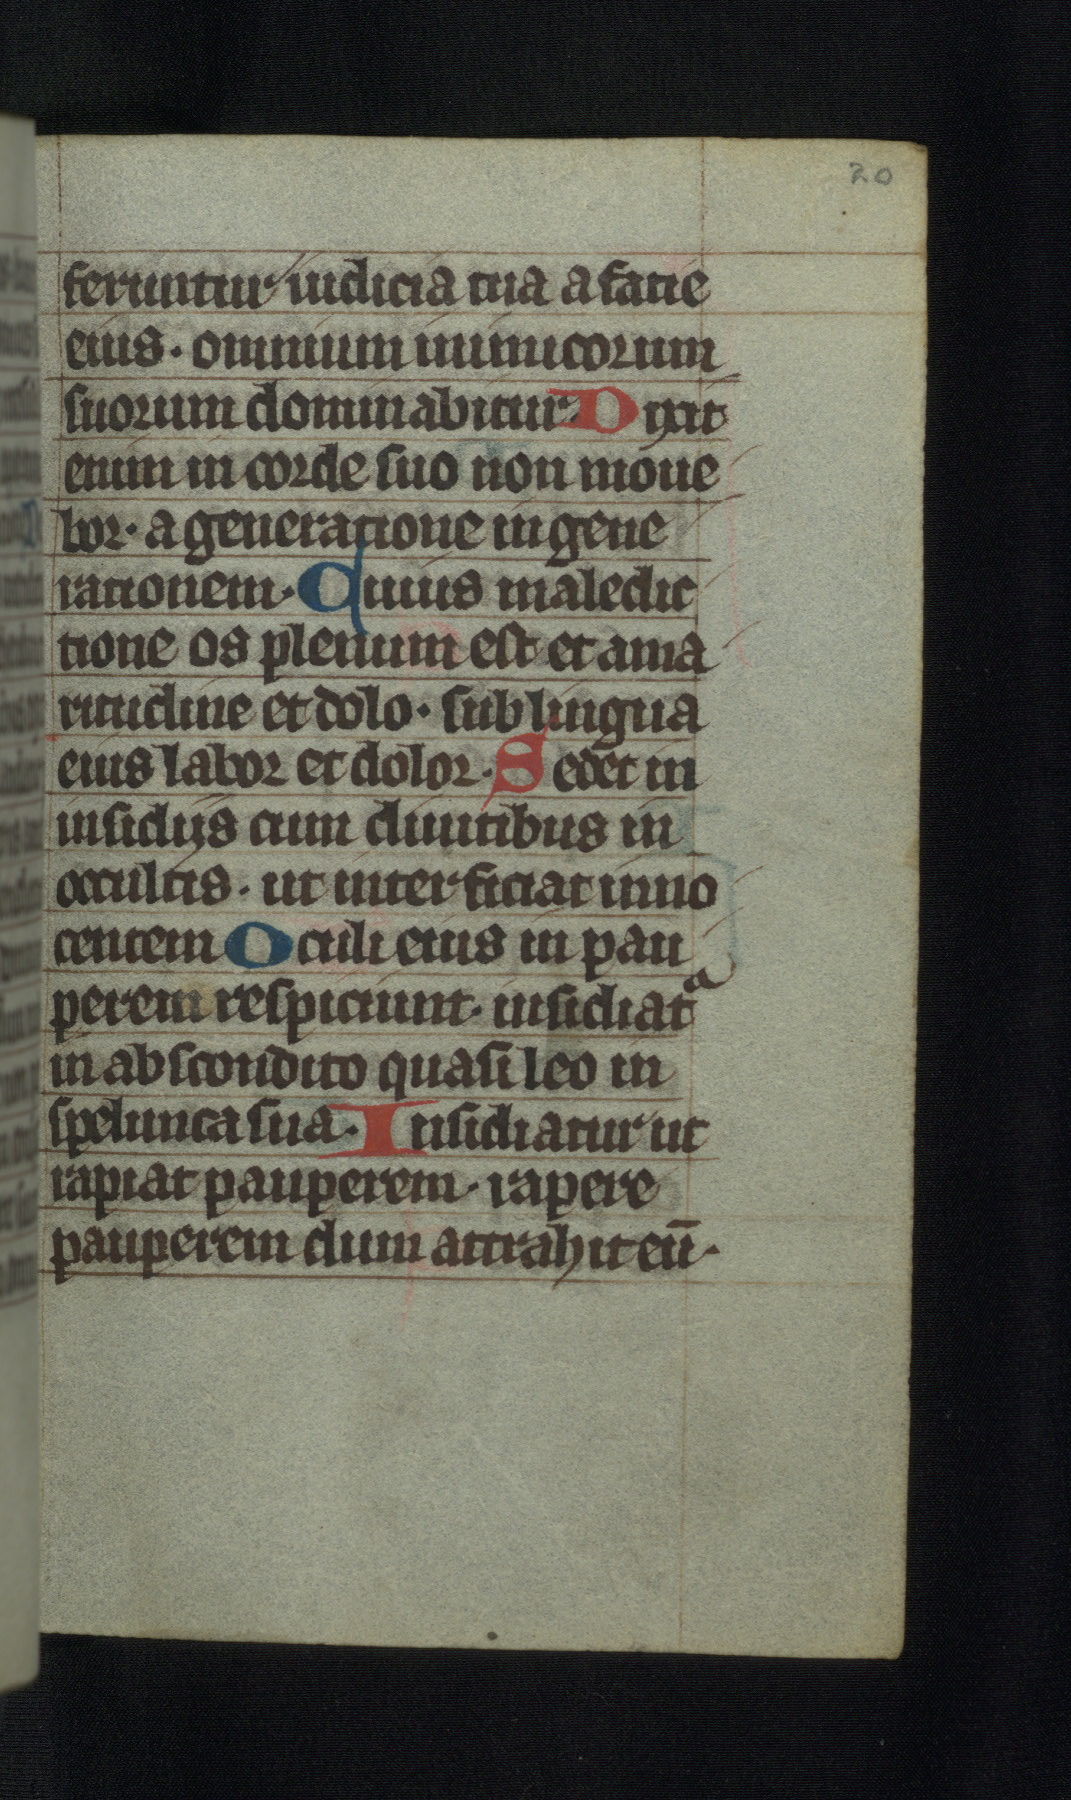 20
feruntur iudicia tua a facie
eius · omnium inimicorum
suorum dominabitur · Dixit
enim in corde suo non moue
bor · a generatione in gene
rationem · Cuius maledic
tione os plenum est et ama
ritudine et dolo · sub lingua
eius labor et dolor · Sedet in
insidiis cum diuitibus in
occultis · ut interficiat inno
centem Oculi eius in pau
perem respiciunt · insidiatᵃ
in abscondito quasi leo in
spelunca sua · Insidiatur ut
rapiat pauperem · rapere
pauperem dum attrahit eū ·